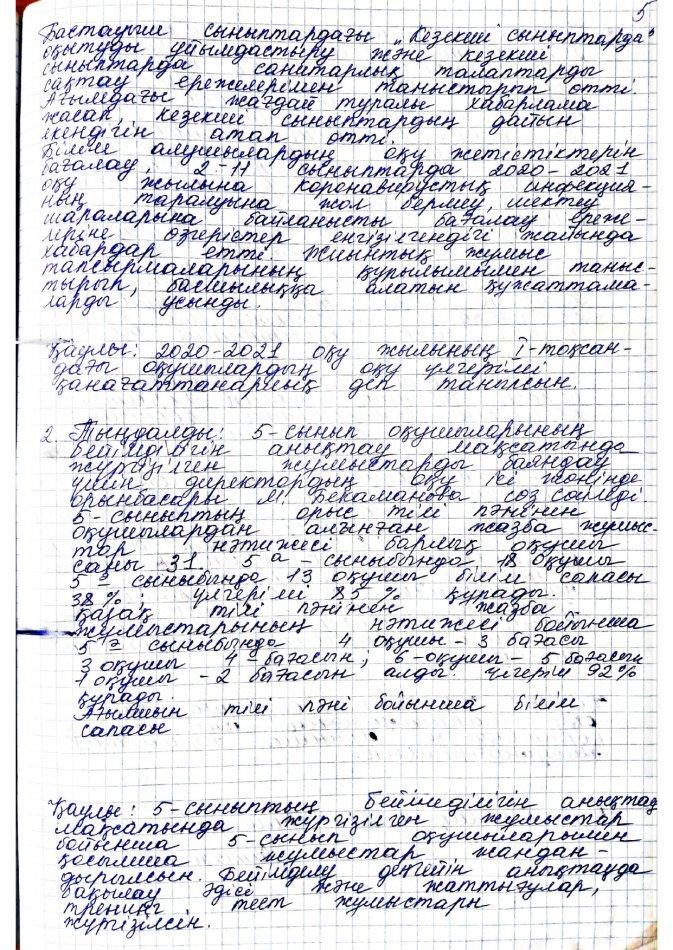 5
Бастауыш сыныптардағы „Кезекші сыныптарда"
оқытуды ұйымдастыру және кезекші
сыныптарда санитарлық талаптарды
сақтау ережелерімен таныстырып өтті.
Ағымдағы жағдай туралы хабарлама
жасап, кезекші сыныптардың дайын
екендігін атап өтті.
Білім алушылардың оқу жетістіктерін
бағалау, 2-11 сыныптарда 2020-2021
оқу жылына коронавирустық инфекция-
ның таралуына жол бермеу, шектеу
шараларына байланысты бағалау ереже-
леріне өзгерістер енгізілгендігі жайында
хабардар етті. Жиынтық жұмыс
тапсырмаларының құрылымымен таныс-
тырып, басшылыққа алатын құжаттама-
ларды ұсынды.
Қаулы: 2020-2021 оқу жылының I-тоқсан-
дағы оқушылардың оқу үлгерімі
қанағаттанарлық деп танылсын.
2. Тыңдалды: 5-сынып оқушыларының
бейімділігін анықтау мақсатында
жүргізілген жұмыстарды баяндау
үшін директордың оқу ісі жөнінде
орынбасары М Бекаманова сөз сөйледі.
5-сыныптың орыс тілі пәнінен
оқушылардан алынған жазба жұмыс-
тар нәтижесі барлық оқушы
саны 31. 5 а - сыныбында 18 оқушы
5 ә сыныбында 13 оқушы білім сапасы
38 %, үлгерімі 85 % құрады.
Қазақ тілі пәнінен жазба
жұмыстарының нәтижесі бойынша
5 ә сыныбында 4 оқушы - 3 бағасы
3 оқушы 4 - бағасын, 6-оқушы - 5 бағасын
1 оқушы - 2 бағасын алды. Үлгерім 92%
құрады.
Ағылшын тілі пәні бойынша білім
сапасы
Қаулы: 5-сыныптың бейімділігін анықтау
мақсатында жүргізілген жұмыстар
бойынша 5-сынып оқушыларымен
қосымша жұмыстар жандан-
дырылсын. Бейімделу деңгейін анықтауда
бақылау әдісі және жаттығулар,
тренинг, тест жұмыстары
жүргізілсін.